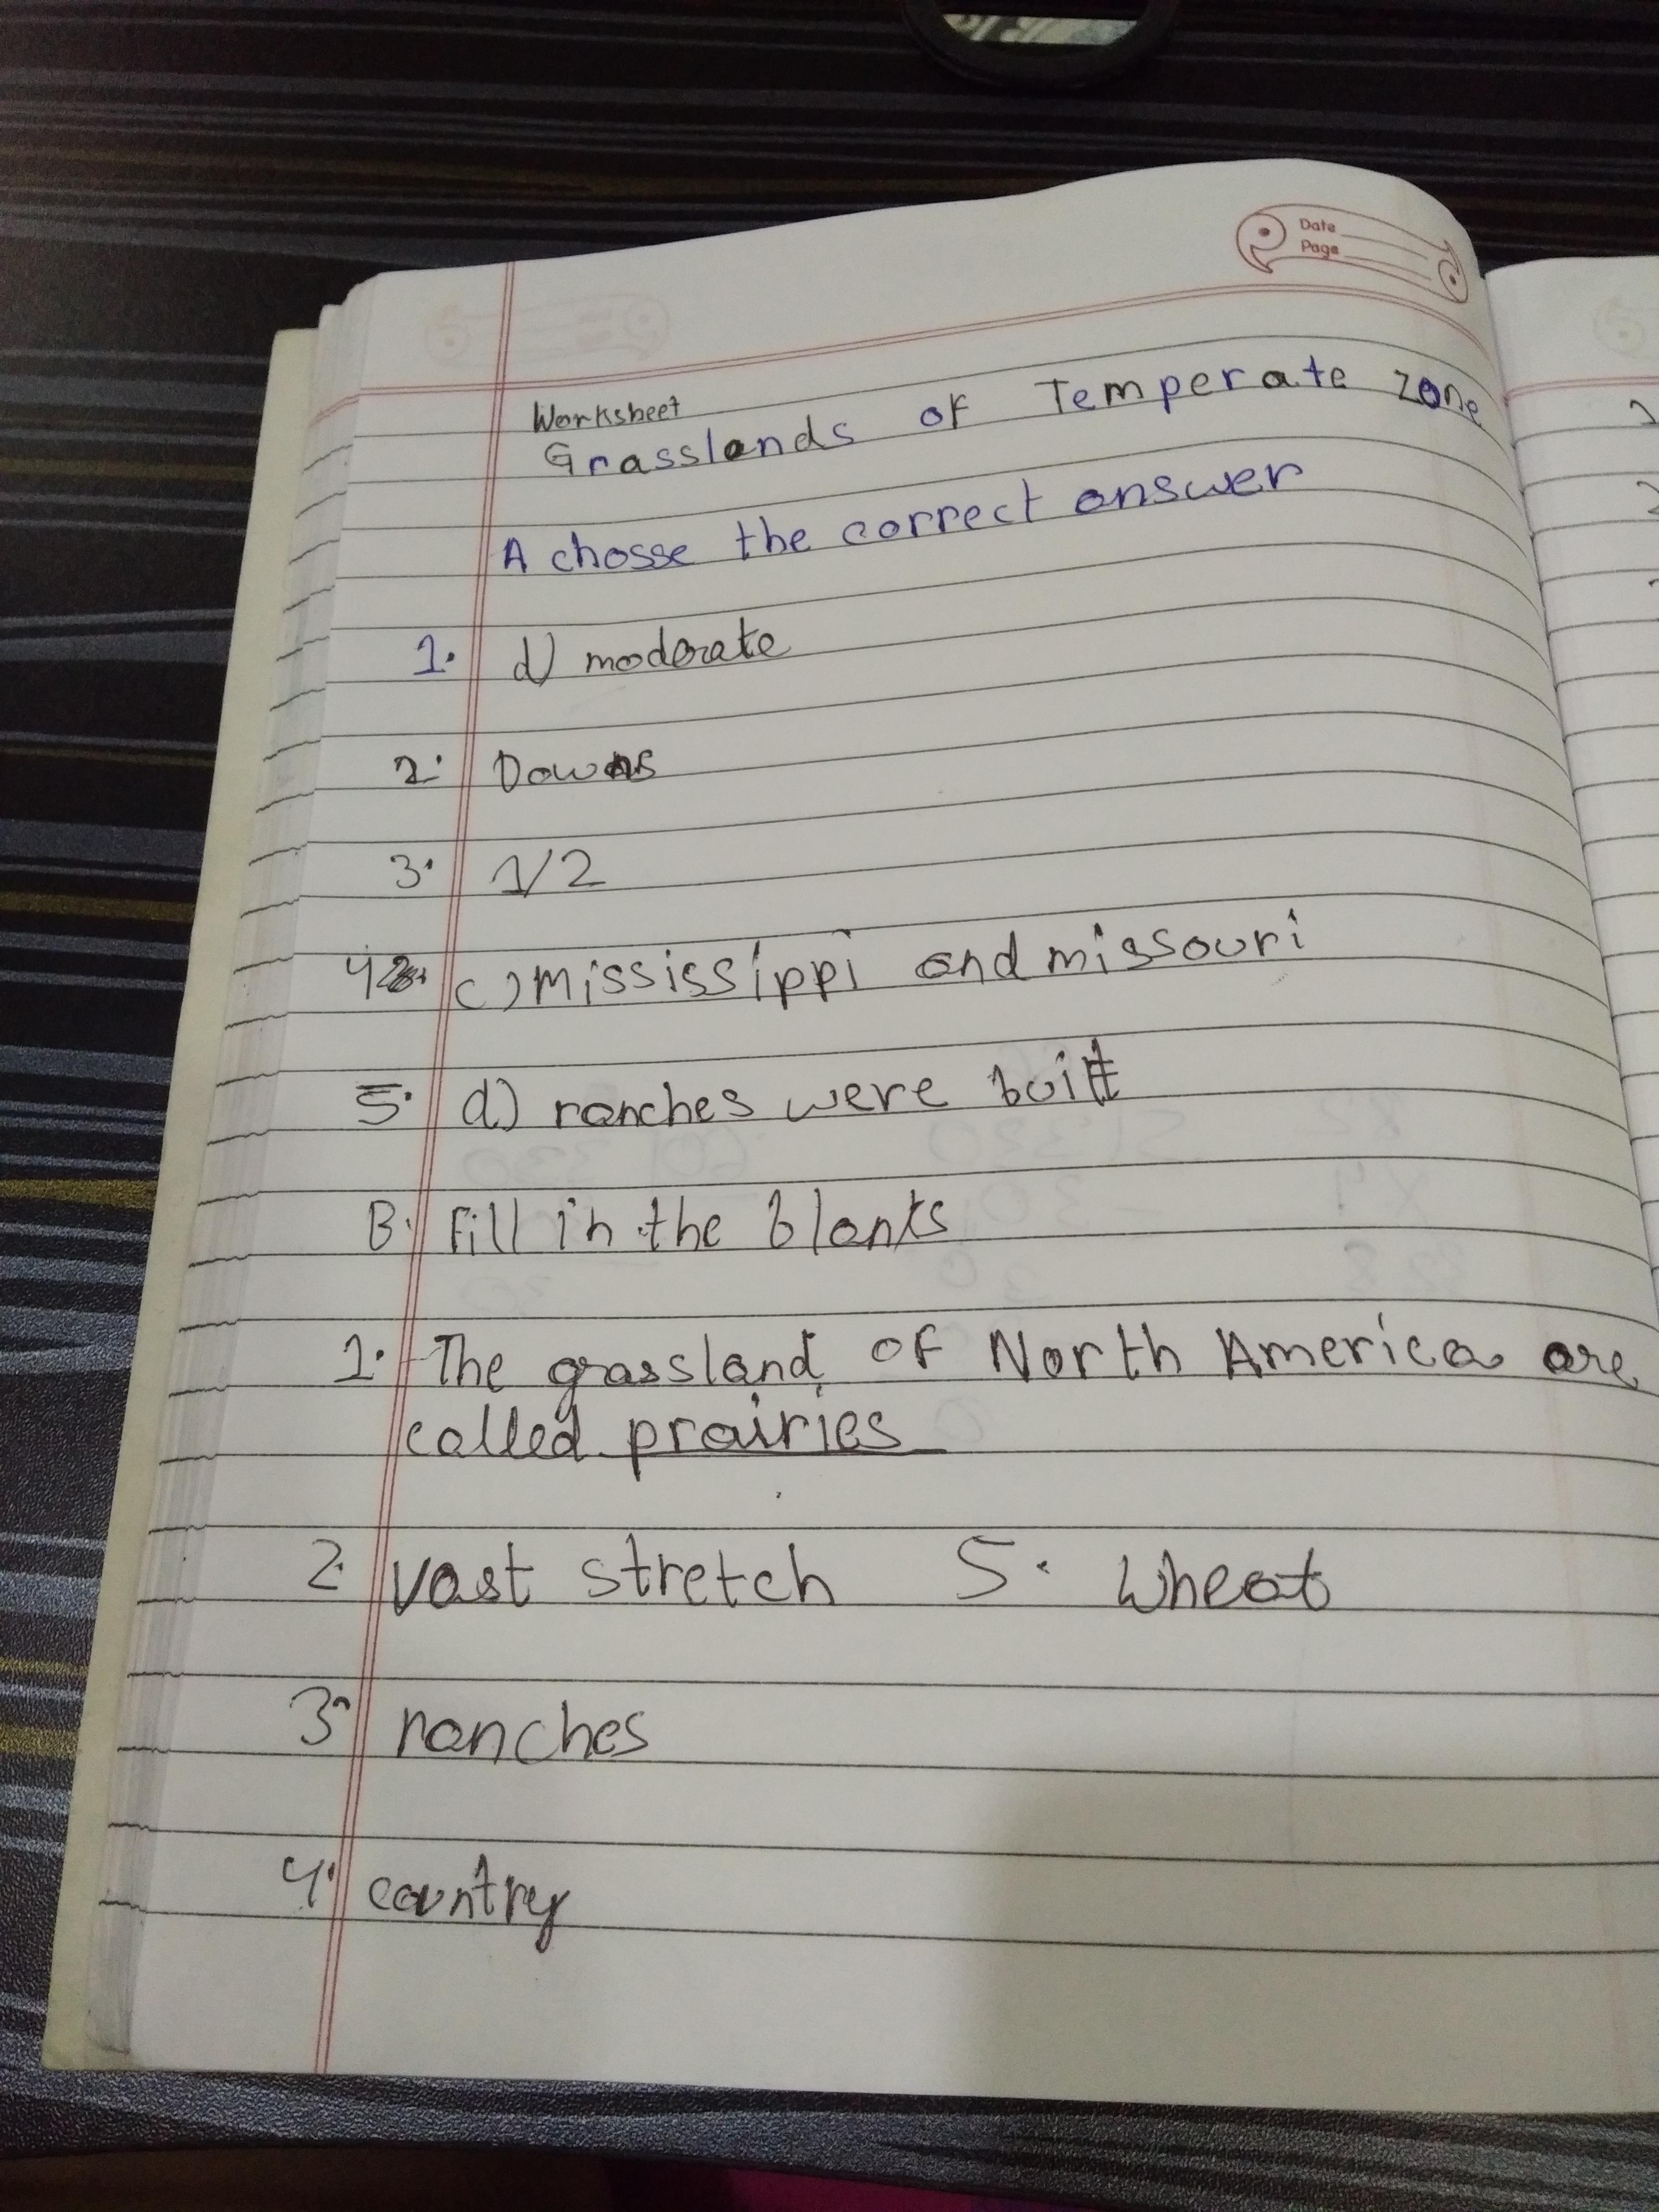 Date
Page
Worksheet
Grasslands of Temperate zone
A chosse the correct answer
1. d) moderate
2. Downs
3. 1/2
4. c) Mississippi and missouri
5. d) ranches were built
B. Fill in the blanks
1. The grassland of North America are
called prairies
2. vast stretch 5. Wheat
3. ranches
4. country